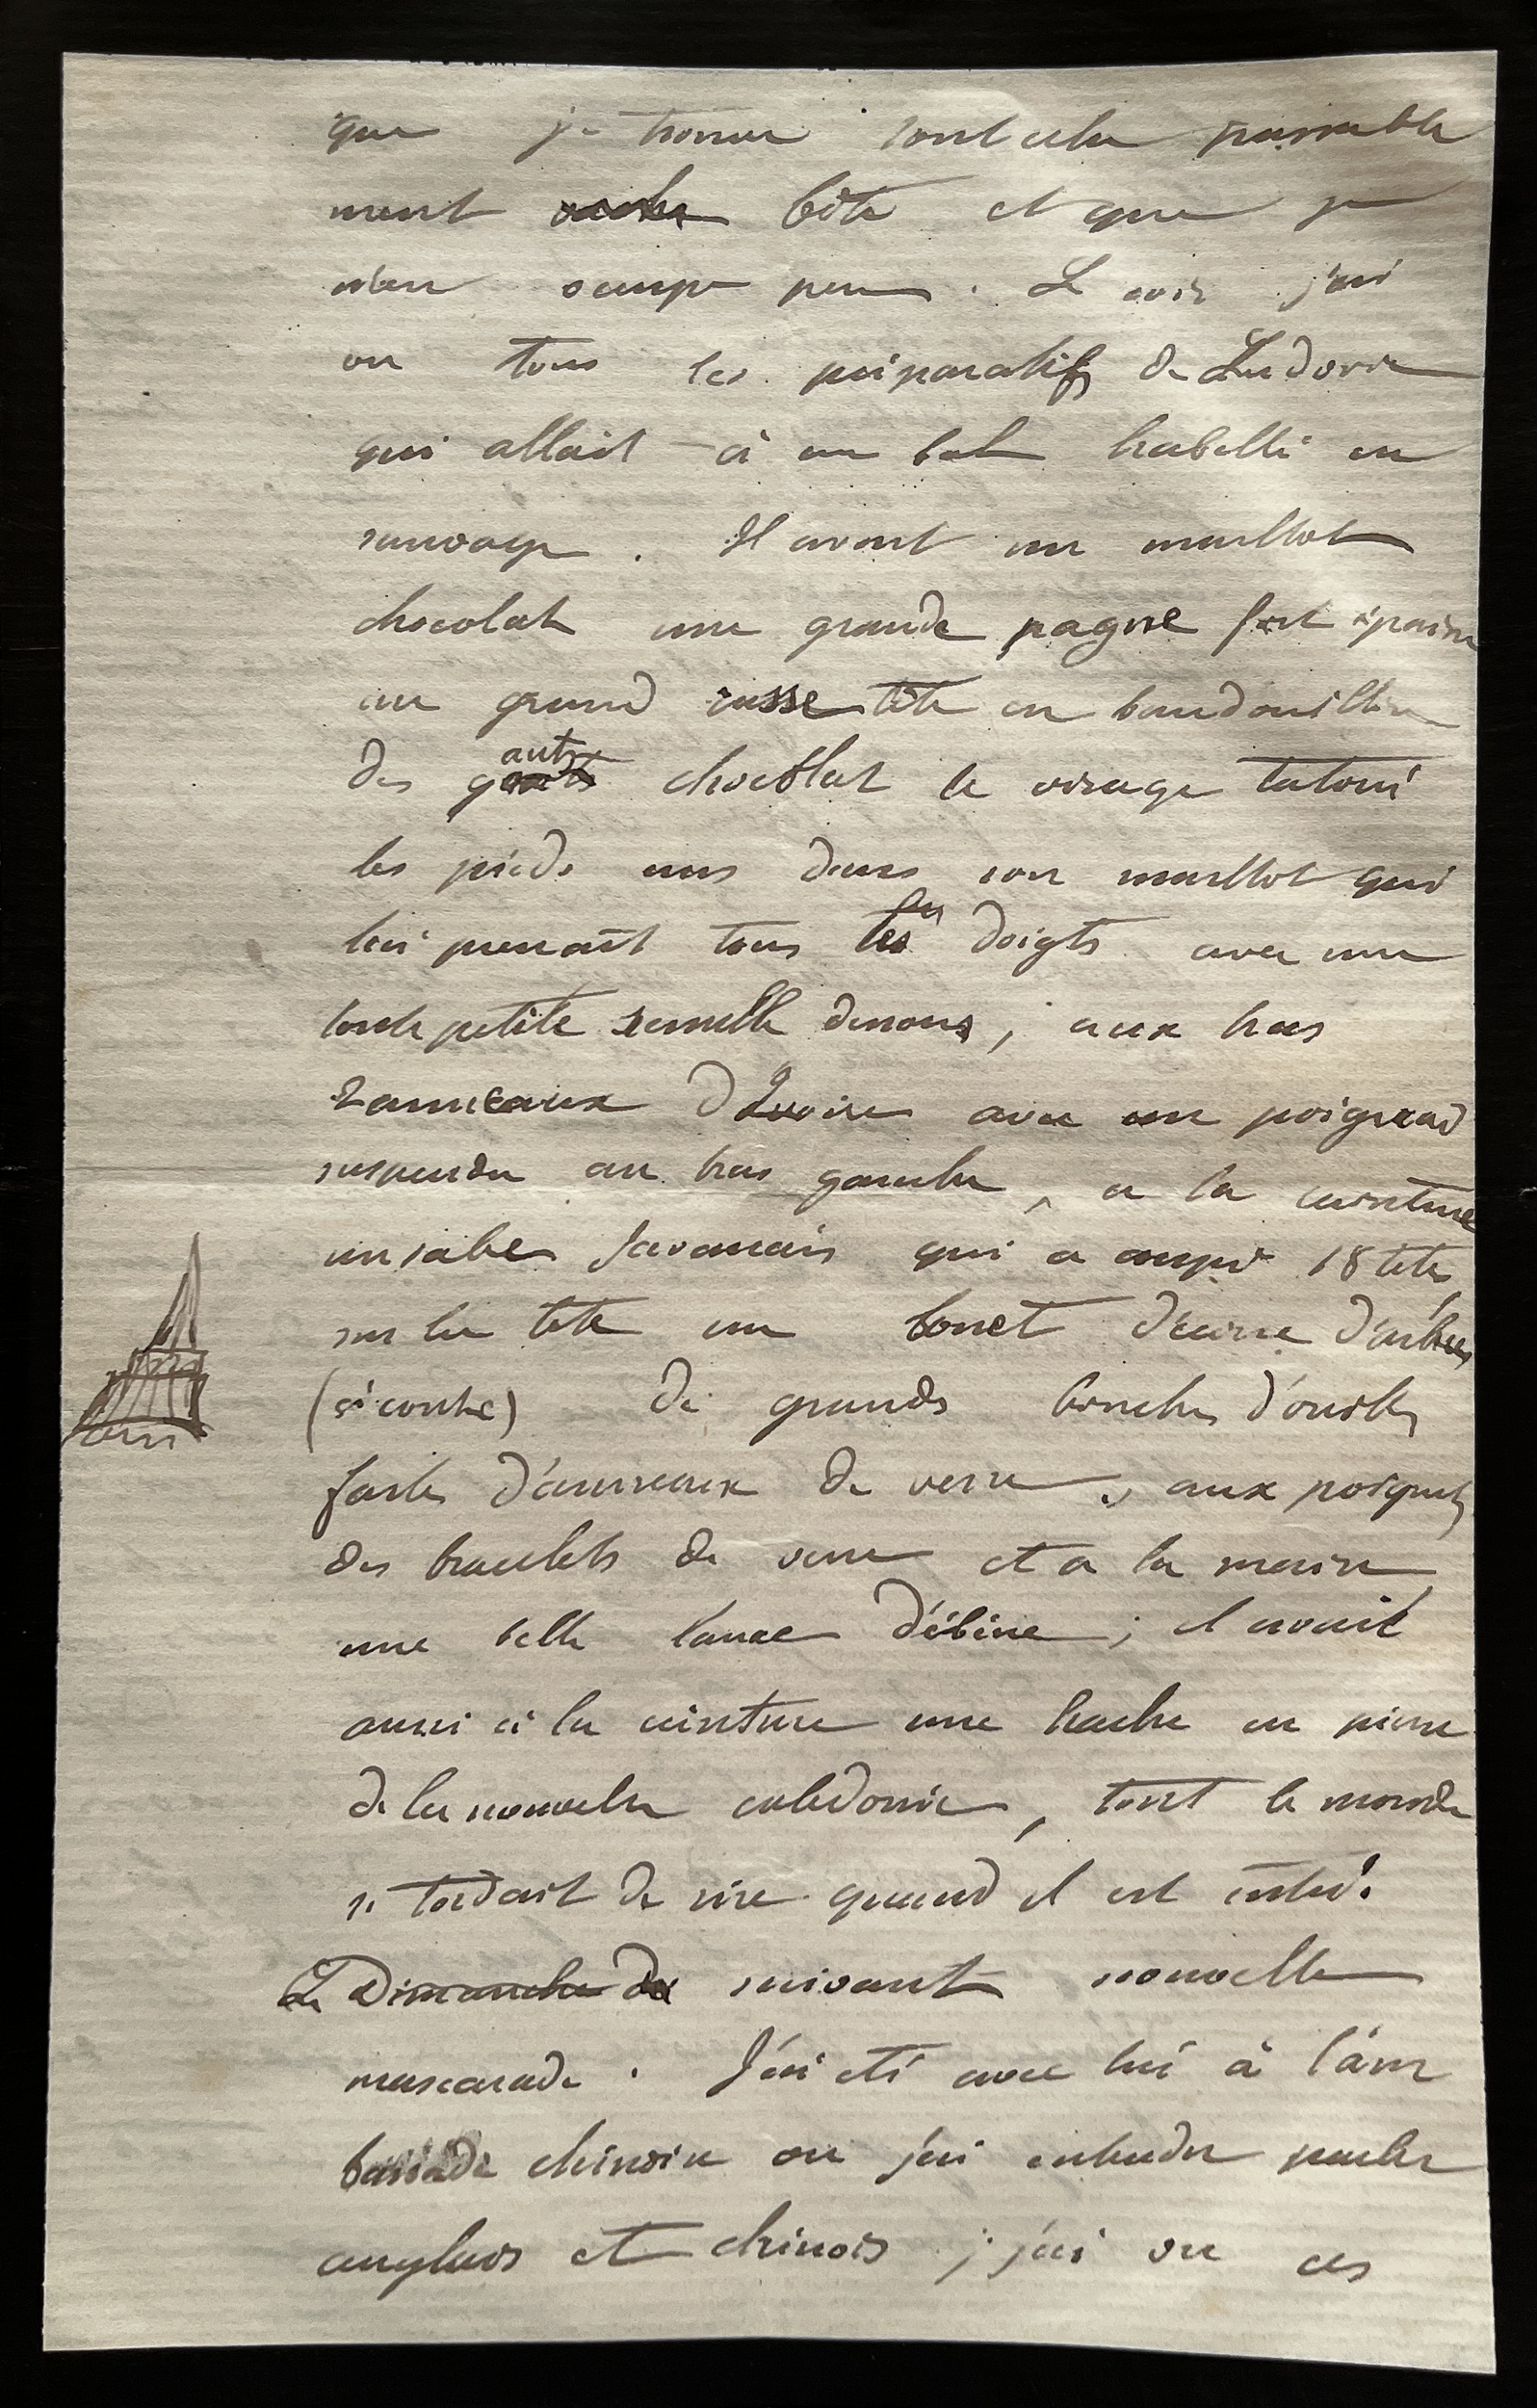 que je trouve tout cela passable
ment bête et que je
m'en occupe peu. Le soir j'ai
vu tous les préparatifs de Ludovic
qui allait à un bal habillé en
sauvage. Il avait un maillot
chocolat une grande pagne fort épaisse
un grand casse tête en bandouillère
des gants chocolat le visage tatoué
les pieds nus dans son maillot qui
lui prenait tous les doigts avec une
toute petite semelle dessous, aux bras
2 anneaux d'Ivoire avec un poignard
suspendu au bras gauche, a la ceinture
un sabre Javanais qui a coupé 18 têtes
sur la tete un bonet d'ecorce d'arbres
(ci contre) de grands boucles d'oreilles
faites d'anneaux de verre, aux poignets
des bracelets de verre et a la main
une belle lance d'ébène; il avait
aussi à la ceinture une hache en pierre
de la nouvelle caledonie, tout le monde
se tordait de rire quand il est entré.
Le Dimanche de suivant nouvelle
mascarade. J'ai été avec lui à l'am
bassade chinoise ou j'ai entendu parler
anglais et chinois; j'ai vu ces